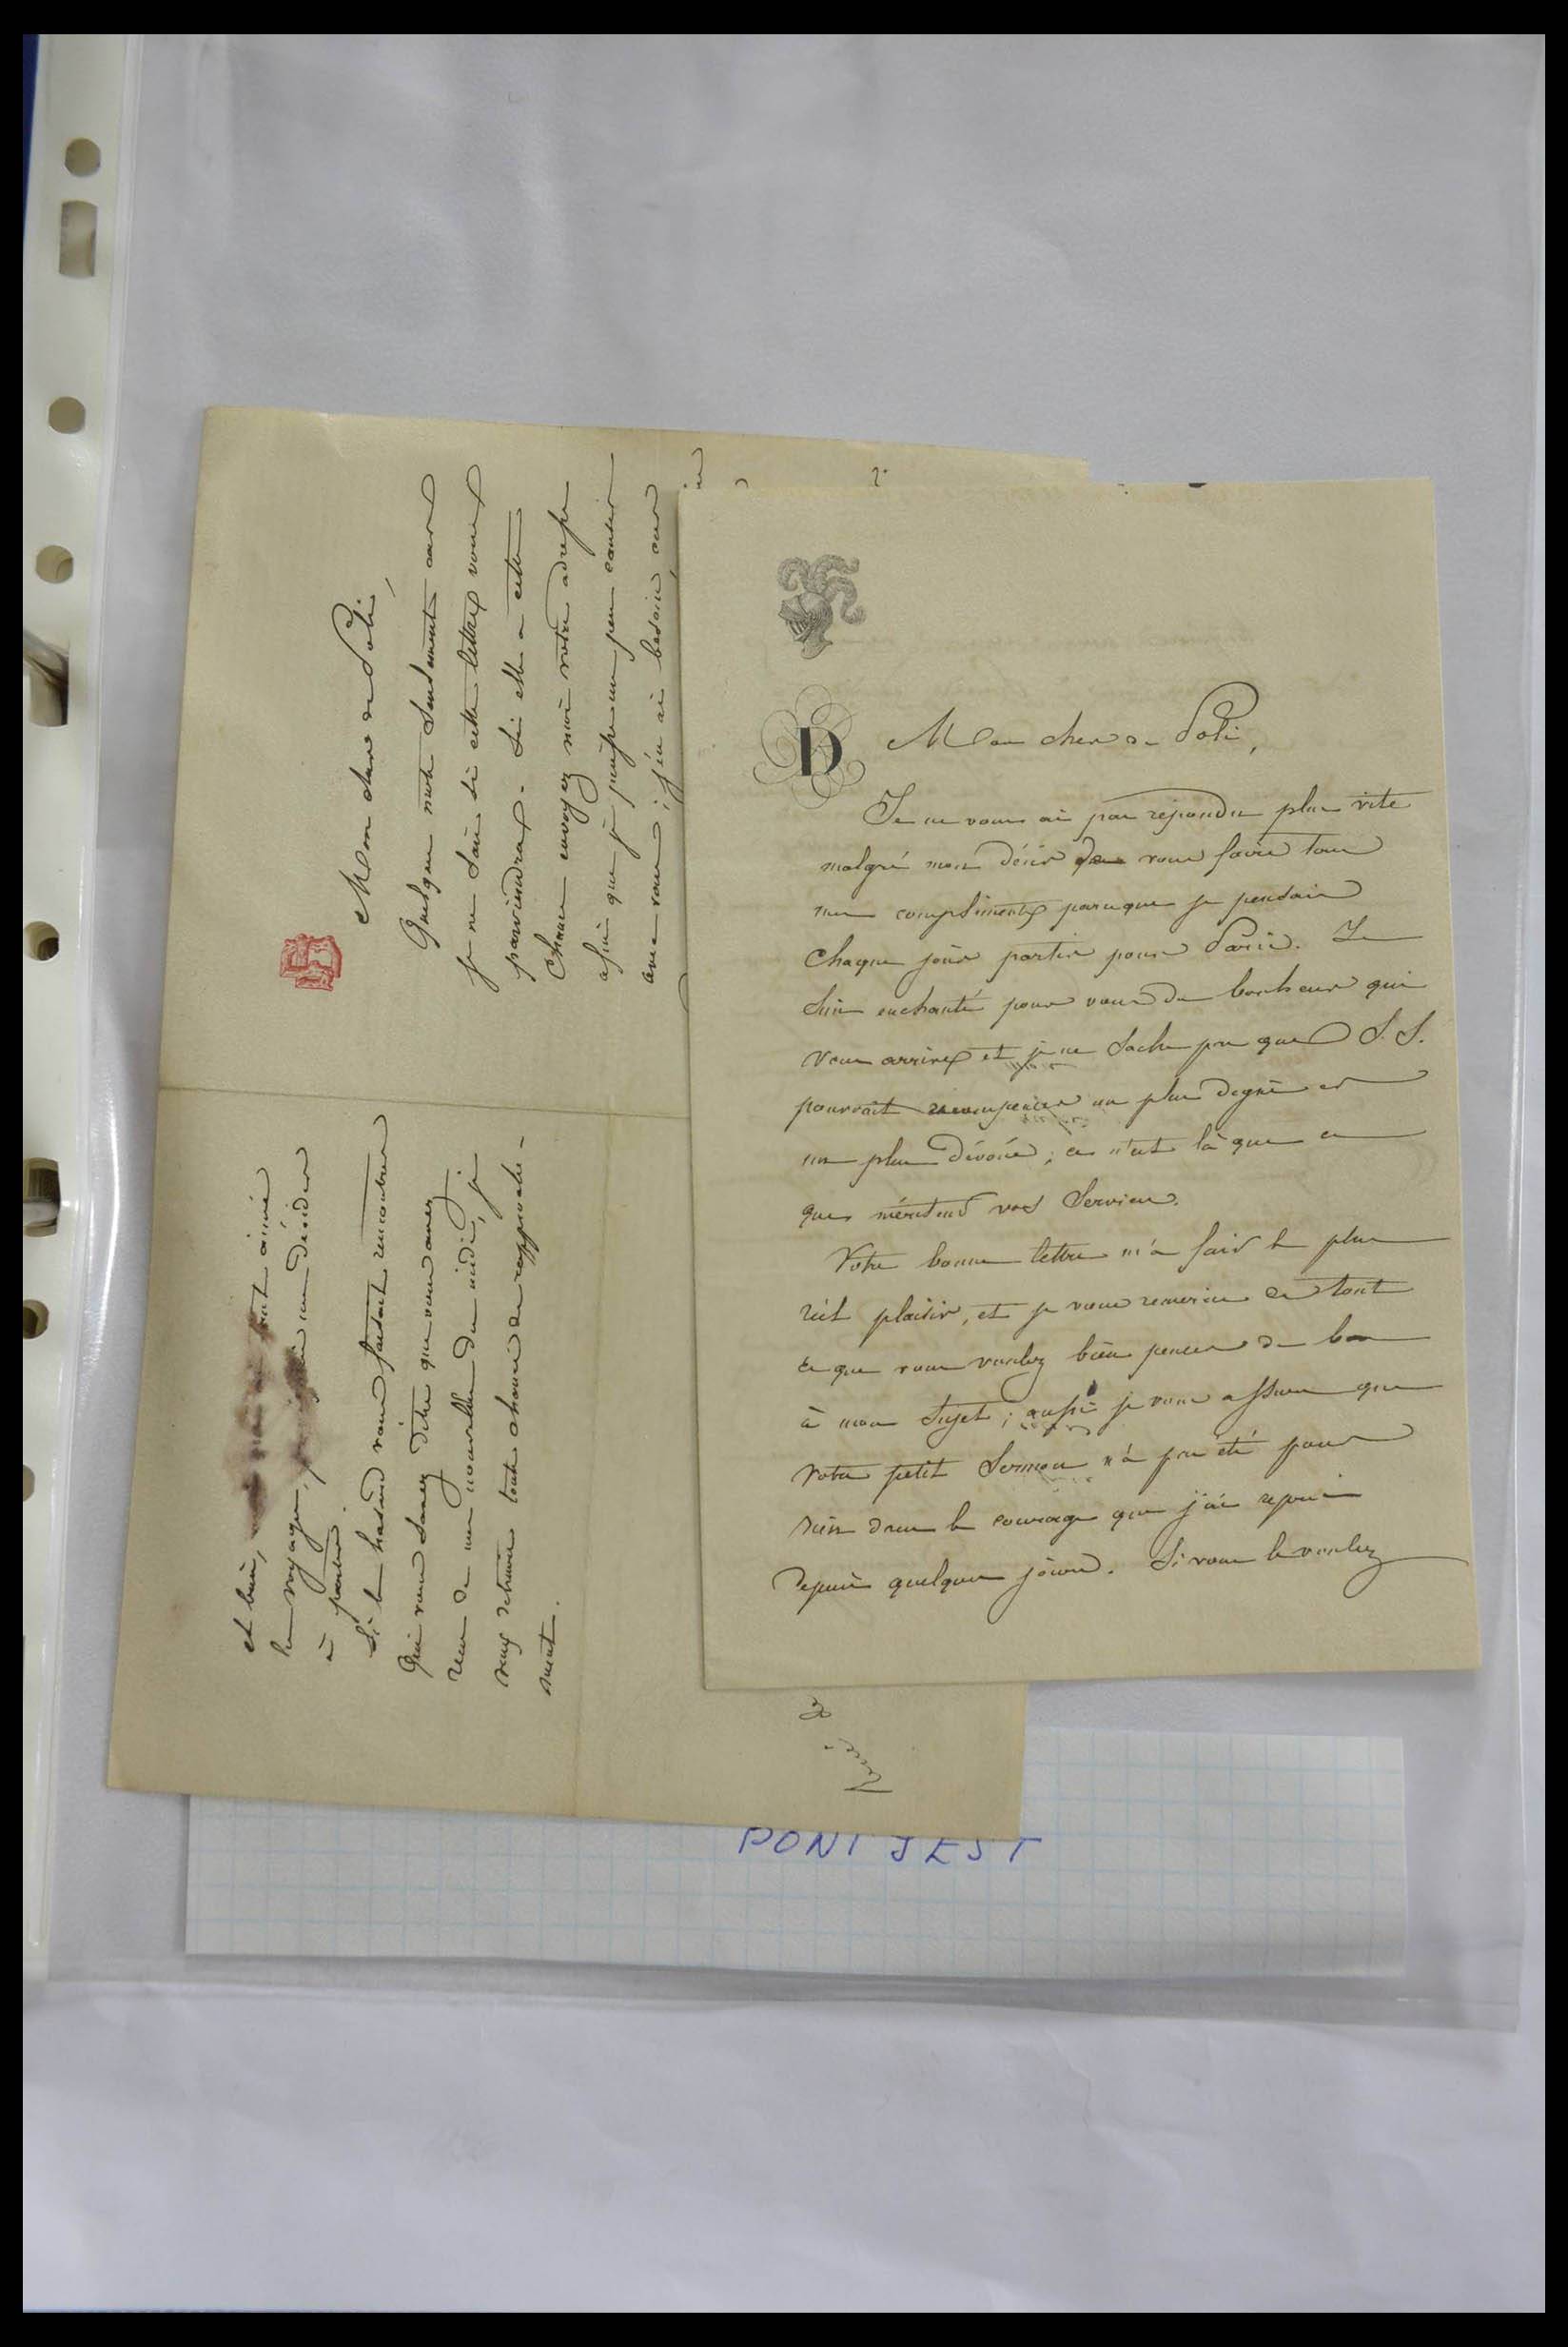 D
Mon cher de Poli,
Je ne vous ai pas répondu plus vite
malgré mon désir de vous faire tous
mes compliments parceque je pensais
chaque jour partir pour Paris. Je
suis enchanté pour vous du bonheur qui
vous arrive et je ne sache pas que S. S.
pourrait récompenser un plus digne et
un plus dévoué ; ce n'est là que ce
que méritent vos services.
Votre bonne lettre m'a fait le plus
réel plaisir, et je vous remercie de tout
ce que vous voulez bien penser de bon
à mon sujet ; aussi je vous assure que
votre petit sermon n'a pas été pour
rien dans le courage que j'ai repris
depuis quelques jours. Si vous le voulez
Mon cher de Poli,
Quelques mots seulement car
je ne sais si cette lettre vous
parviendra. Si elle a cette
chance envoyez moi votre adresse
afin que je puisse un peu causer
avec vous ; j'en ai besoin car
et bien,
les voyages, me décider
à partir.
Si le hasard vous faisait rencontrer
qui vous savez dites que vous avez
reçu de mes nouvelles du midi, je
veux détruire toute chance de rapproche-
ment.
René de
PONT JEST